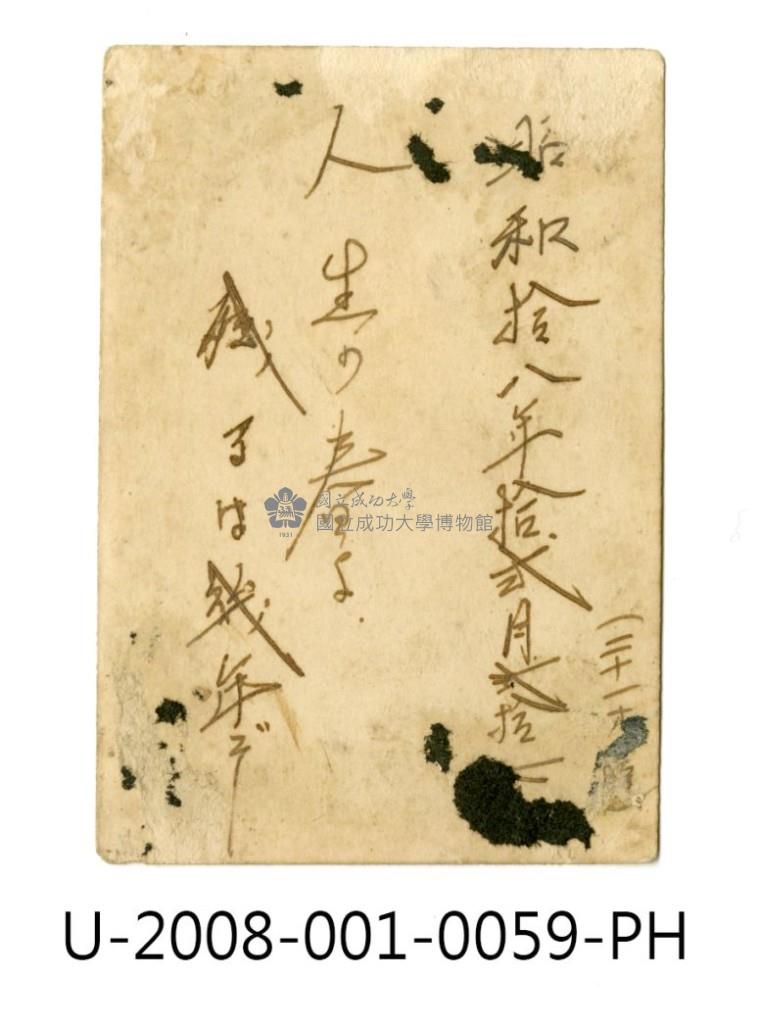 昭和拾八年拾弐月弐拾二
(二十一才
人生の春よ
残るは幾年ぞ
國立成功大學
國立成功大學博物館
1931
U-2008-001-0059-PH